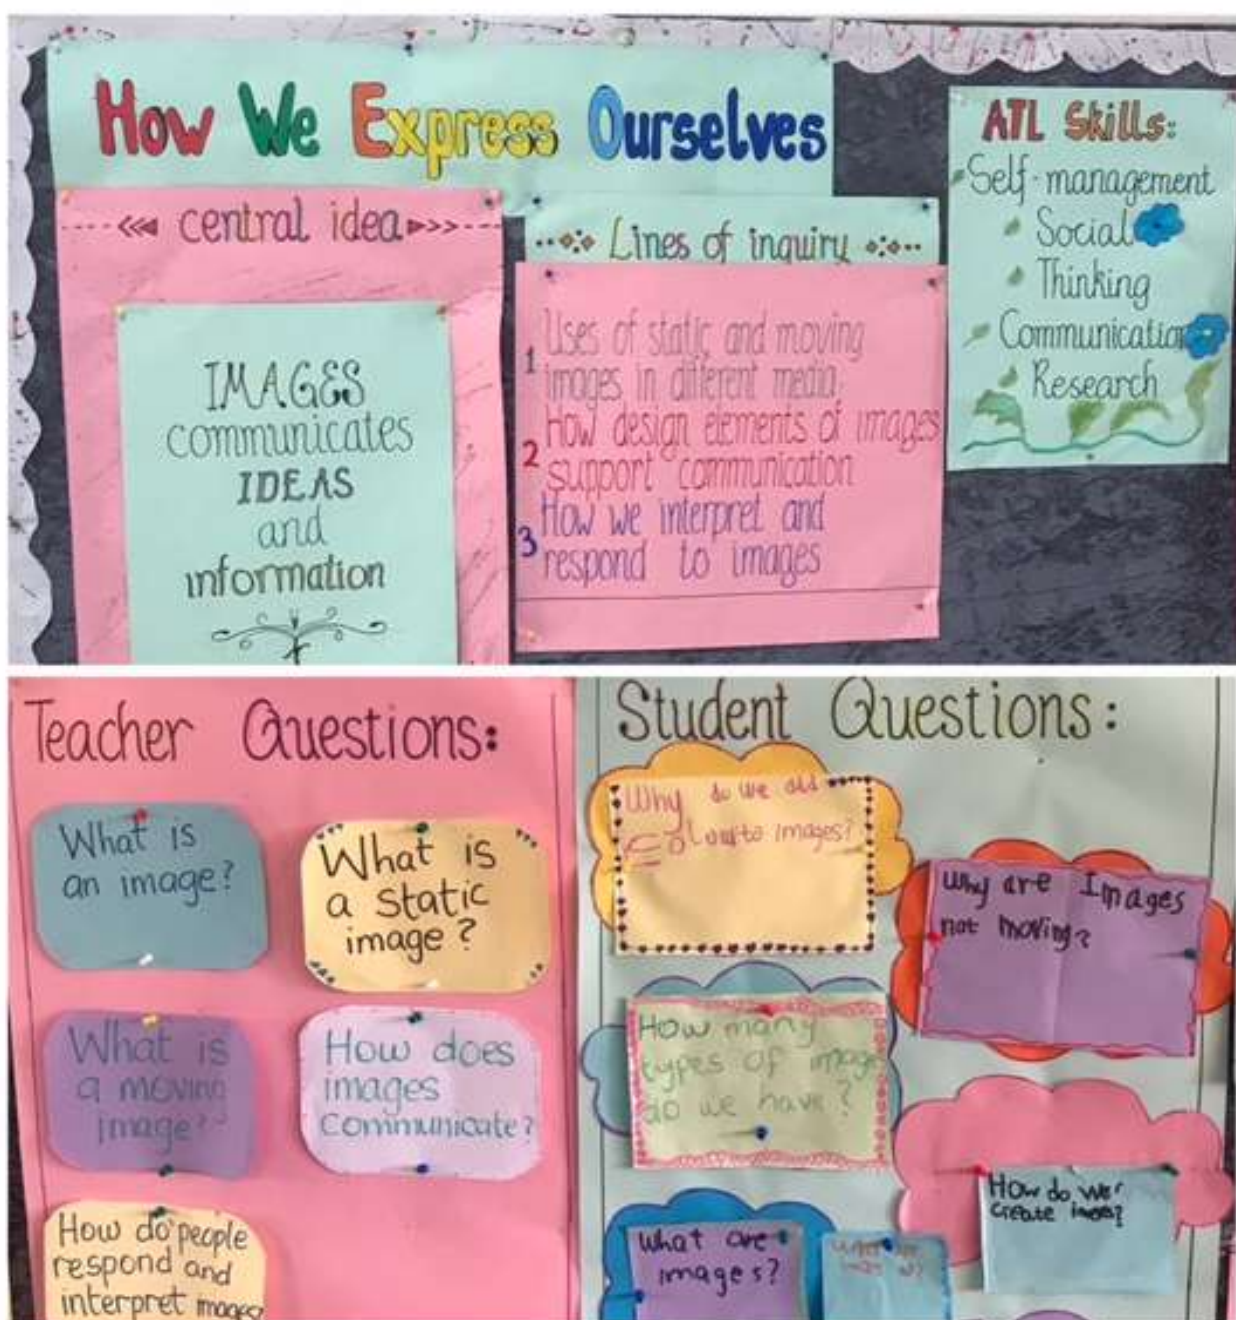 How We Express Ourselves
central idea
IMAGES
communicates
IDEAS
and
information
Lines of inquiry
1 Uses of static and moving
images in different media.
2 How design elements of images
support communication
3 How we interpret and
respond to images
ATL Skills:
Self-management
Social
Thinking
Communication
Research
Teacher Questions:
What is
an image?
What is
a static
image?
What is
a moving
image?
How does
images
communicate?
How do people
respond and
interpret images
Student Questions:
Why do we add
to images?
Why are Images
not moving?
How many
types of image
do we have?
How do we
create
What are
images?